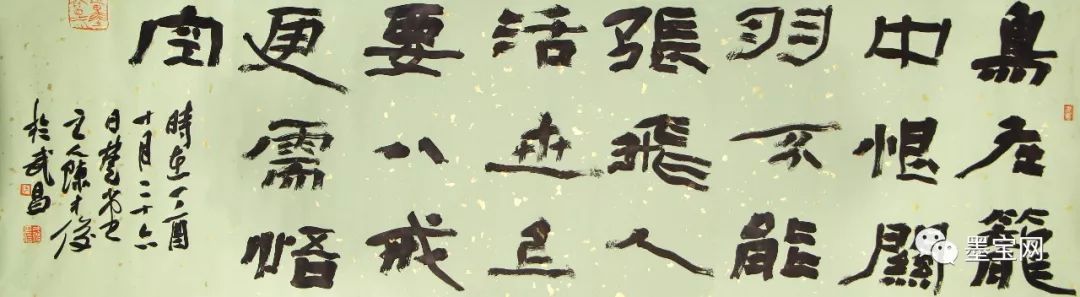 鳥在籠
中恨關
羽不能
張飛人
活世上
要八戒
更需悟
空
時在丁酉
十月二十六
日楚
人陳才俊
於武昌
墨宝网